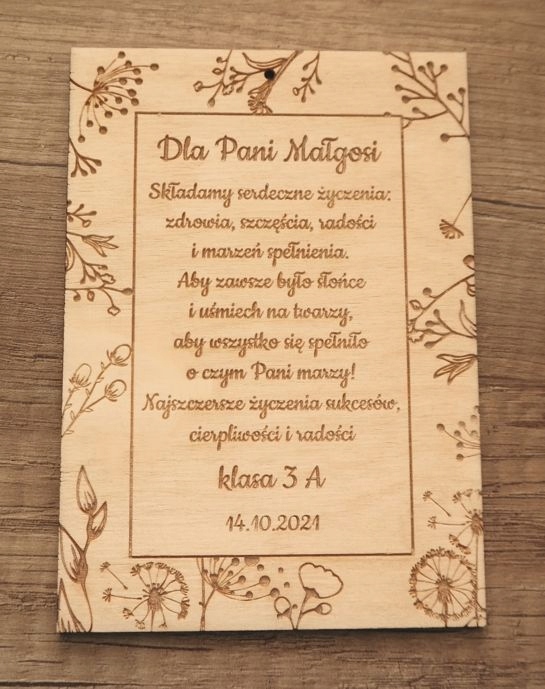 Dla Pani Małgosi
Składamy serdeczne życzenia:
zdrowia, szczęścia, radości
i marzeń spełnienia.
Aby zawsze było słońce
i uśmiech na twarzy,
aby wszystko się spełniło
o czym Pani marzy!
Najszczersze życzenia sukcesów,
cierpliwości i radości
klasa 3 A
14.10.2021